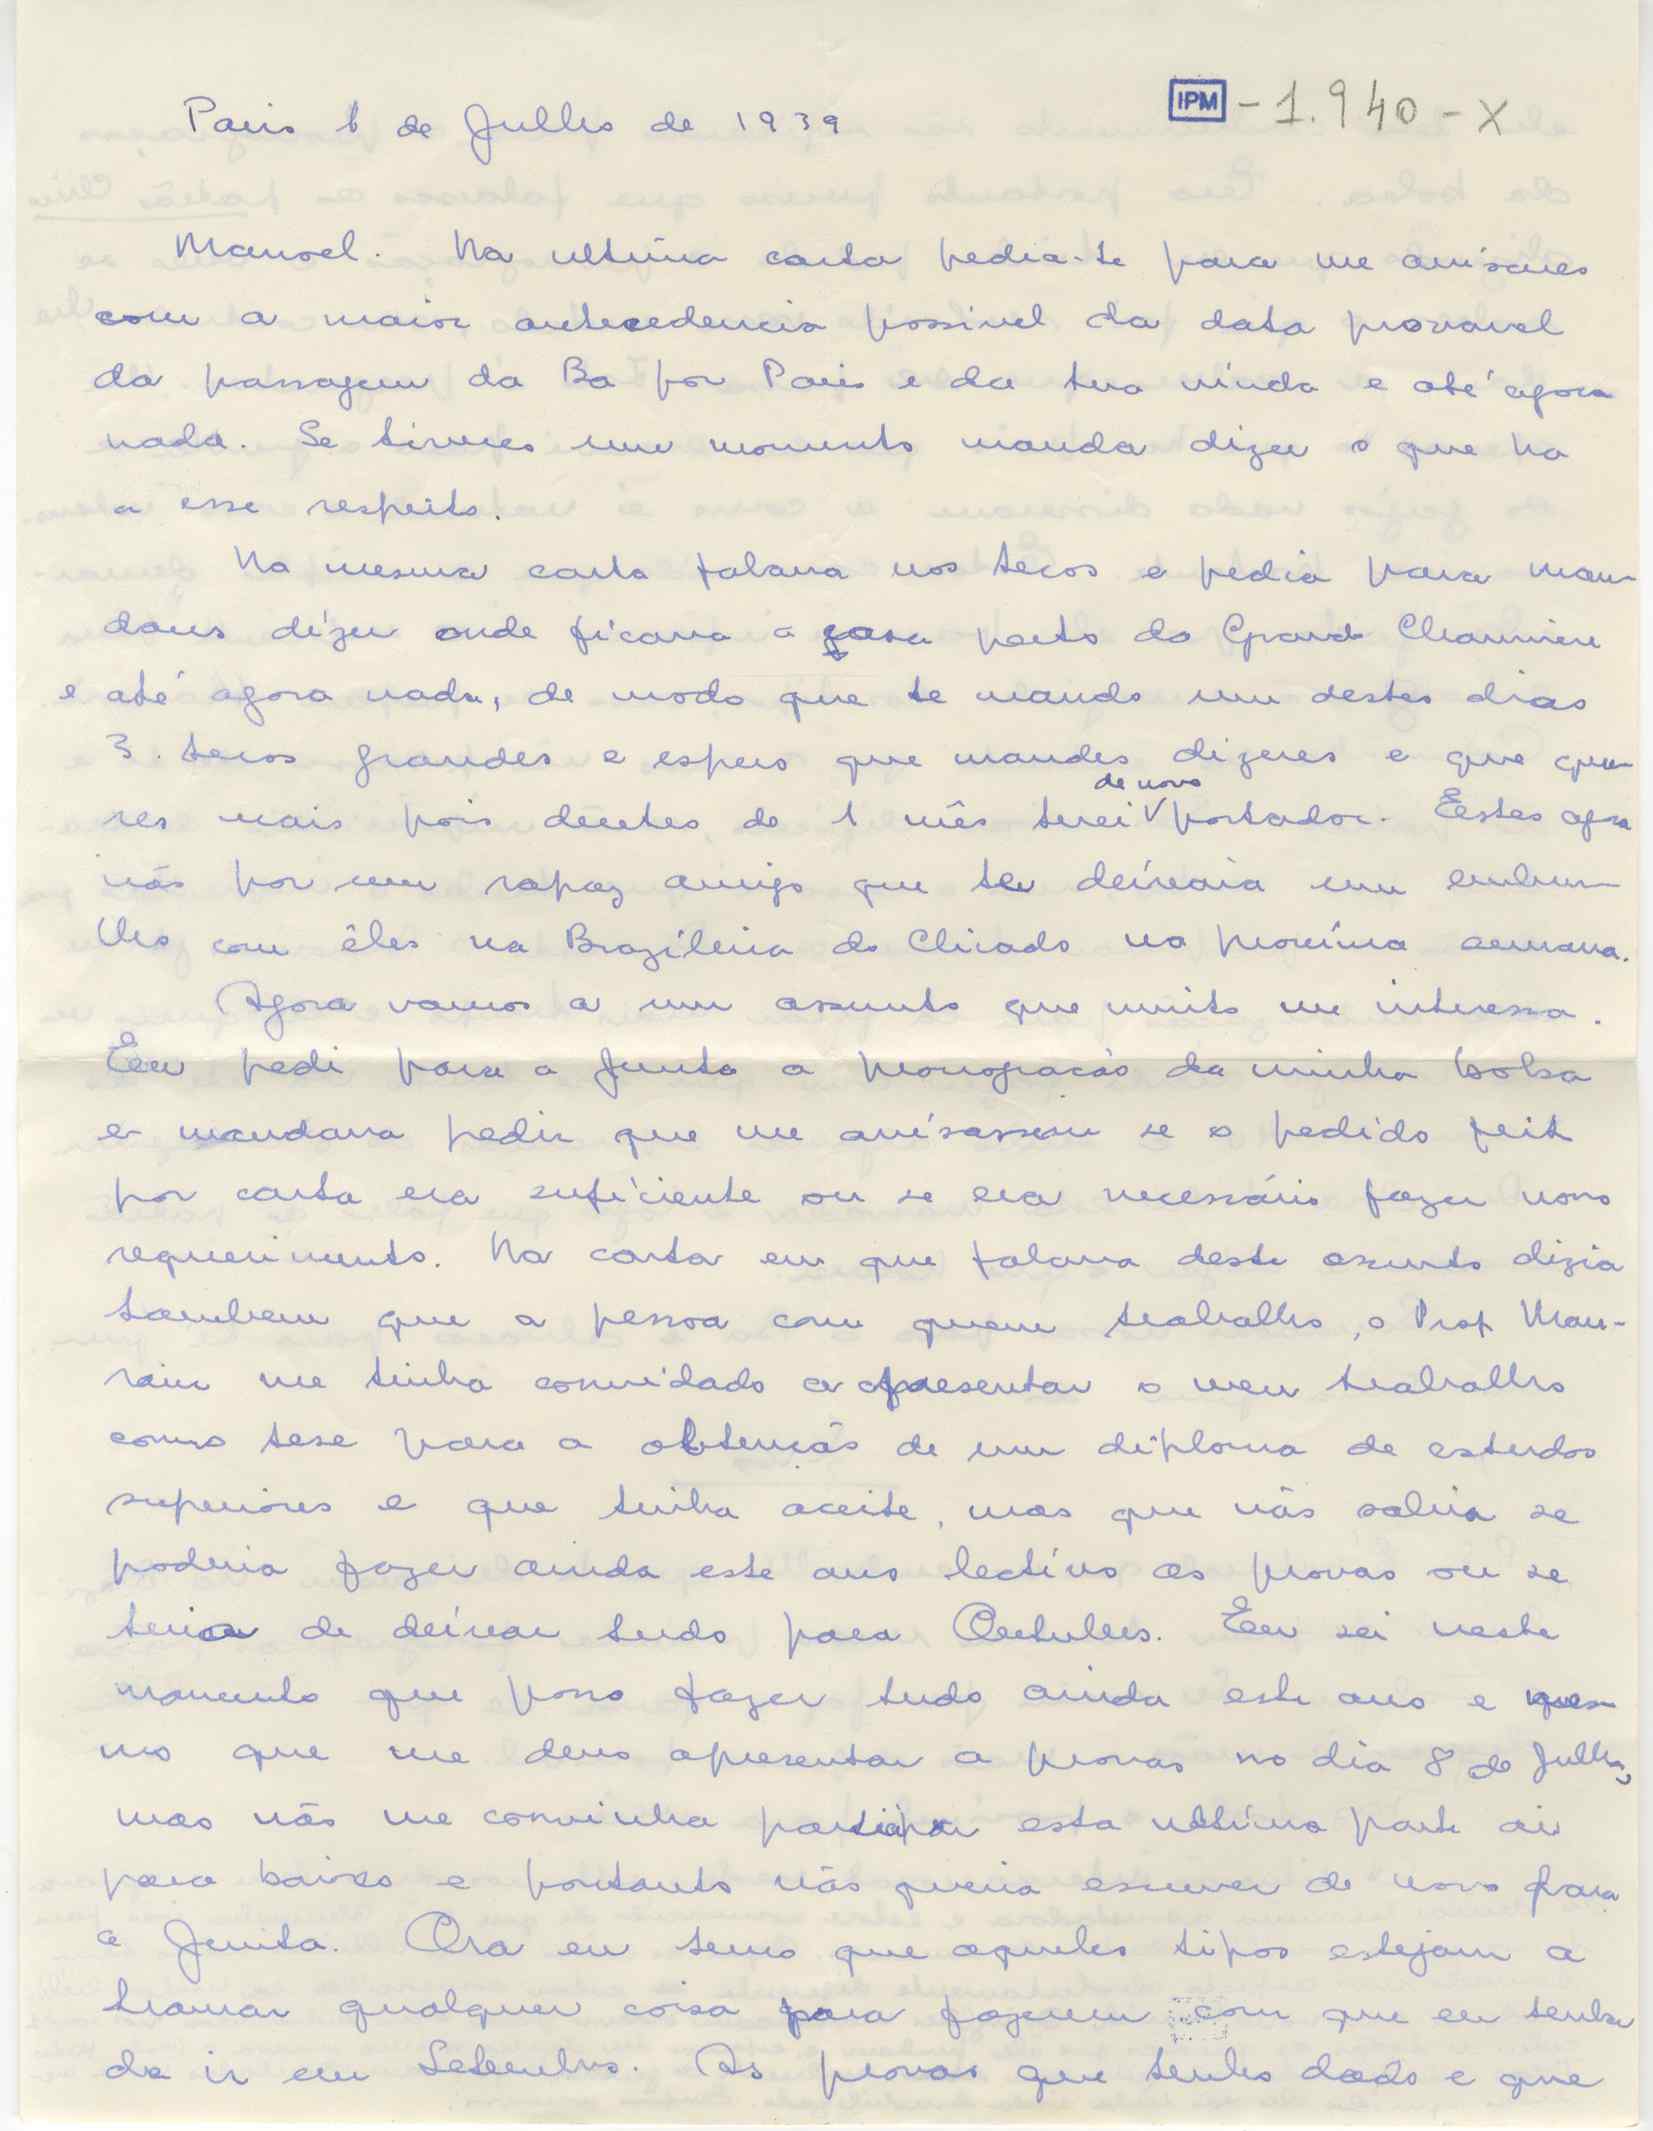 Paris 1 de Julho de 1939
IPM - 1.940 - X
Manoel. Na ultima carta pedia-te para me avisares
com a maior antecedencia possivel da data provavel
da passagem da Ba por Paris e da tua vinda e até agora
nada. Se tiveres um momento manda dizer o que ha
a esse respeito.
Na mesma carta falava nos tecos e pedia para man-
dares dizer onde ficava a casa perto da Grande Chaumière
e até agora nada, de modo que te mando um destes dias
3 tecos grandes e espero que mandes dizeres e que que-
res mais pois dentro de 1 mês terei de novo portador. Estes agora
vão por um rapaz amigo que te deixaria um embru-
lho com êles na Brazileira do Chiado na proxima semana.
Agora vamos a um assunto que muito me interessa.
Eu pedi para a Junta a prorrogação da minha bolsa
e mandava pedir que me avisassem se o pedido feito
por carta era suficiente ou se era necessário fazer novo
requerimento. Na carta em que falava deste assunto dizia
tambem que a pessoa com quem trabalho, o Prof. Mau-
rain me tinha convidado a apresentar o meu trabalho
como tese para a obtenção de um diploma de estudos
superiores e que tinha aceite, mas que não sabia se
poderia fazer ainda este ano lectivo as provas ou se
teria de deixar tudo para Outubro. Eu sei neste
momento que posso fazer tudo ainda este ano e mes-
mo que me devo apresentar a provas no dia 8 de Julho,
mas não me convinha participar esta ultima parte aí
para baixo e portanto não queria escrever de novo para
a Junta. Ora eu temo que aqueles tipos estejam a
tramar qualquer coisa para fazerem com que eu tenha
de ir em Setembro. As provas que tenho dado e que